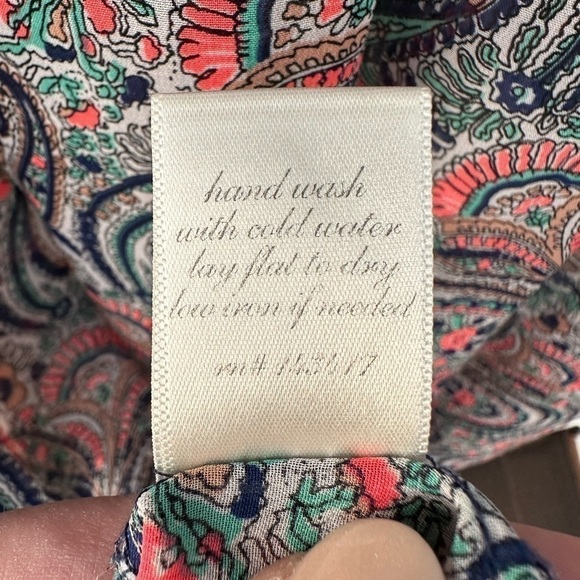 hand wash
with cold water
lay flat to dry
low iron if needed
rn#